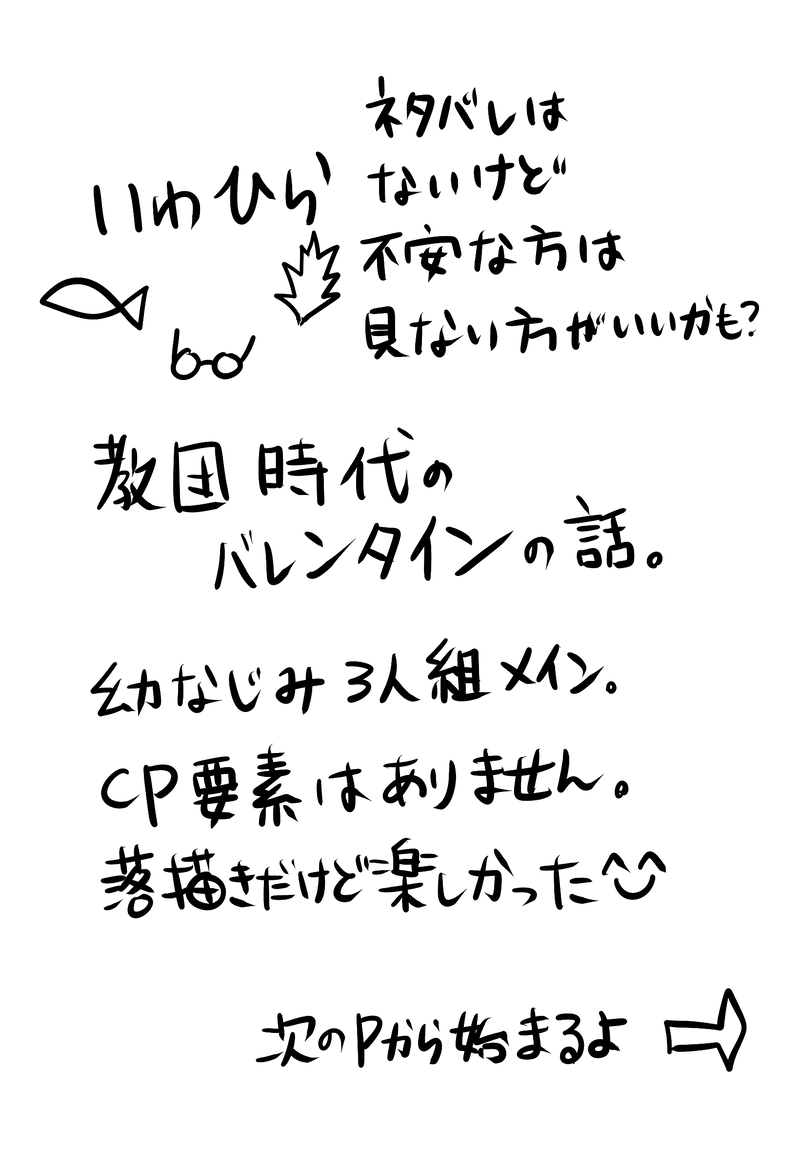 いわひら
ネタバレは
ないけど
不安な方は
見ない方がいいかも?
教団時代の
バレンタインの話。
幼なじみ3人組メイン。
CP要素はありません。
落描きだけど楽しかった
次のPから始まるよ